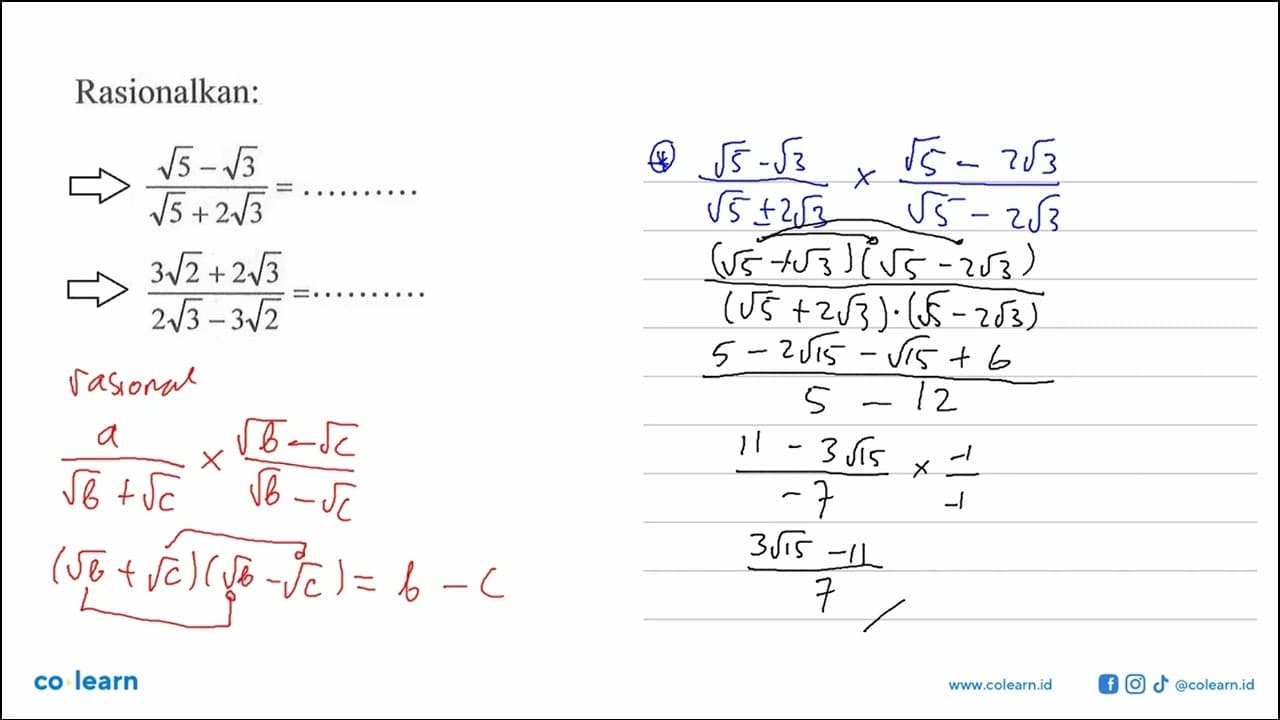 Rasionalkan:
⇨ (√5 − √3)/(√5 + 2√3) = ..........
⇨ (3√2 + 2√3)/(2√3 − 3√2) = ..........
rasional
a/(√b + √c) × (√b − √c)/(√b − √c)
(√b + √c)(√b − √c) = b − c
(√5 − √3)/(√5 + 2√3) × (√5 − 2√3)/(√5 − 2√3)
(√5 + √3)(√5 − 2√3)
(√5 + 2√3)·(√5 − 2√3)
5 − 2√15 − √15 + 6
5 − 12
(11 − 3√15)/(−7) × (−1)/(−1)
3√15 − 11
7
co learn
www.colearn.id
@colearn.id